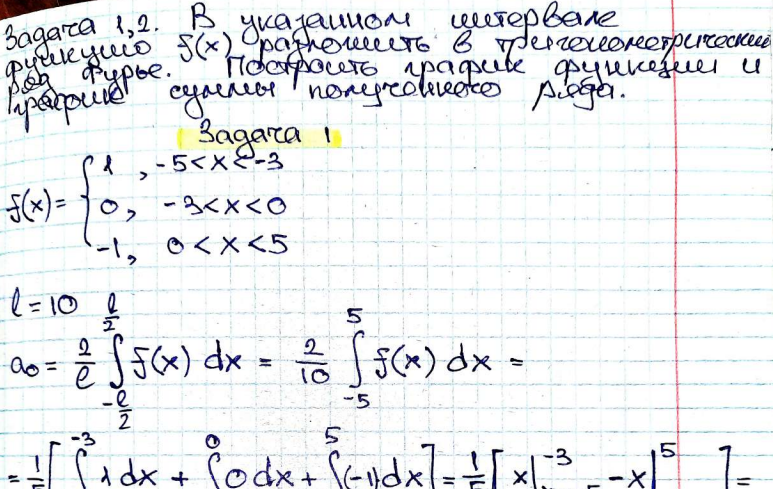 Задача 1,2. В указанном интервале
функцию f(x) разложить в тригонометрический
ряд Фурье. Построить график функции и
график суммы полученного ряда.
Задача 1
f(x) = { 1, -5<x<-3
0, -3<x<0
-1, 0<x<5
l = 10
a₀ = 2/l ∫_{-l/2}^{l/2} f(x) dx = 2/10 ∫_{-5}^{5} f(x) dx =
= 1/5 [ ∫^{-3} 1 dx + ∫^{0} 0 dx + ∫^{5} (-1) dx ] = 1/5 [ x|^{-3} - x|^{5} ] =